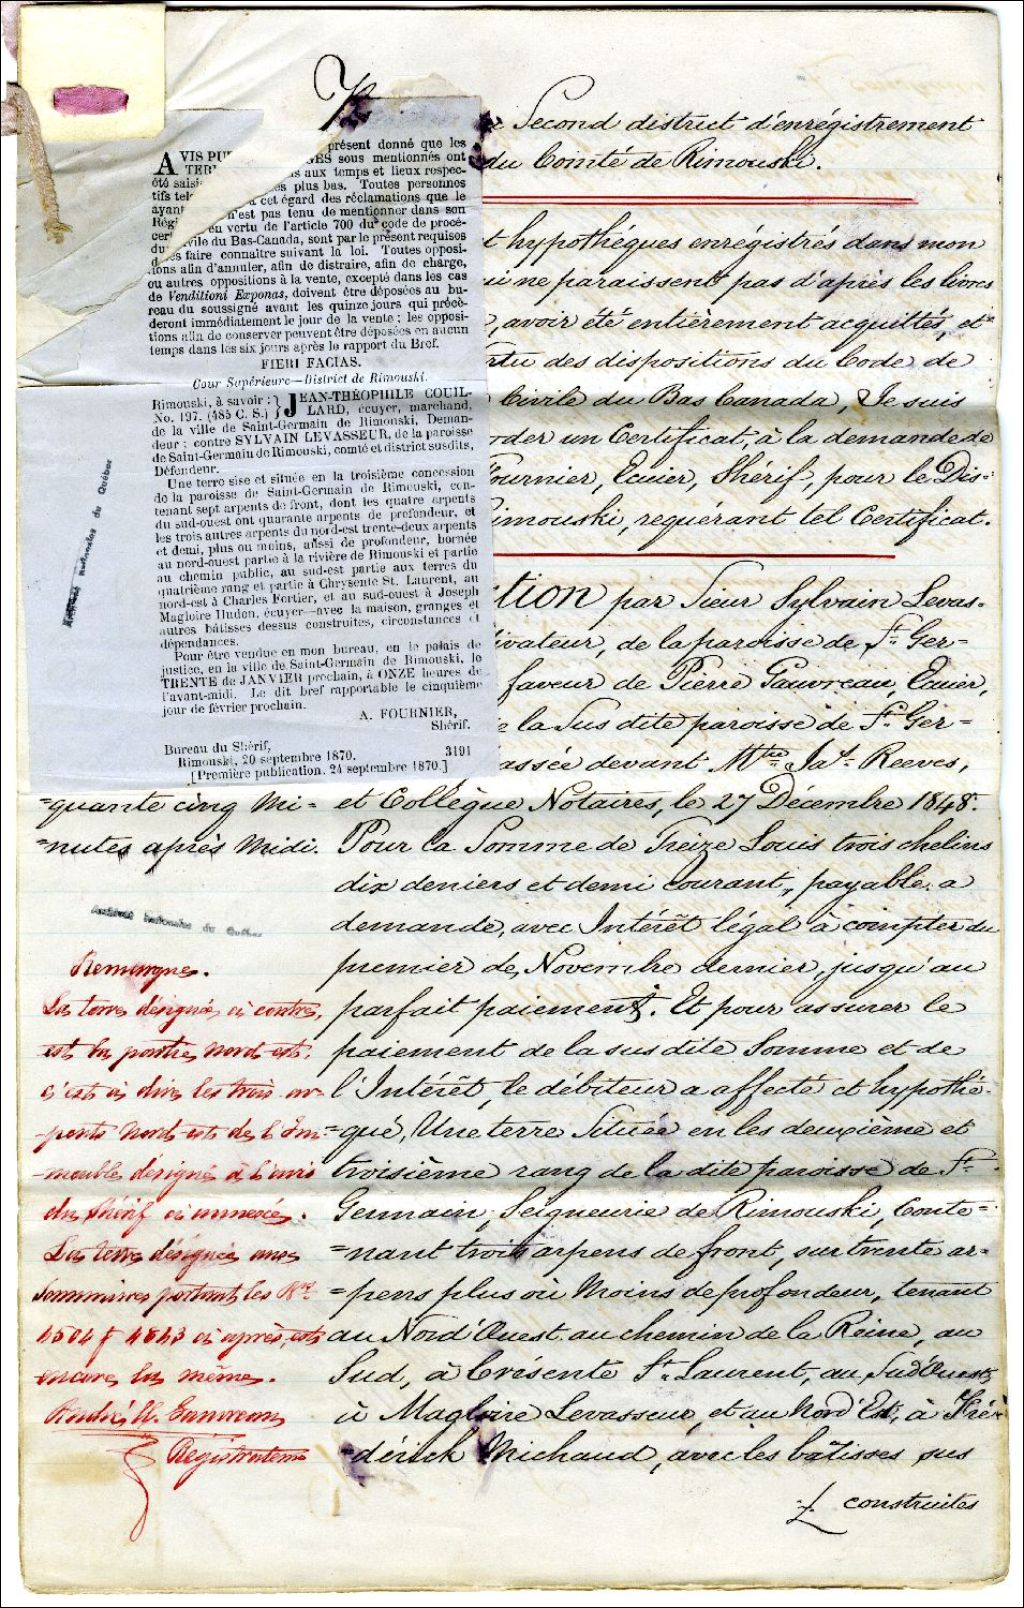 Second district d'enrégistrement
du Comté de Rimouski.
AVIS présent donné que les
TER sous mentionnés ont
été saisi aux temps et lieux respec-
tifs tel plus bas. Toutes personnes
ayant à cet égard des réclamations que le
Rég n'est pas tenu de mentionner dans son
cer en vertu de l'article 700 du code de procé-
du vile du Bas-Canada, sont par le présent requises
d es faire connaître suivant la loi. Toutes opposi-
tions afin d'annuler, afin de distraire, afin de charge,
ou autres oppositions à la vente, excepté dans les cas
de Venditioni Exponas, doivent être déposées au bu-
reau du soussigné avant les quinze jours qui précè-
deront immédiatement le jour de la vente ; les opposi-
tions afin de conserver peuvent être déposées en aucun
temps dans les six jours après le rapport du Bref.
FIERI FACIAS.
Cour Supérieure—District de Rimouski.
Rimouski, à savoir : } JEAN-THÉOPHILE COUIL-
No. 197. (485 C. S.) } LARD, écuyer, marchand,
de la ville de Saint-Germain de Rimouski, Deman-
deur ; contre SYLVAIN LEVASSEUR, de la paroisse
de Saint-Germain de Rimouski, comté et district susdits,
Défendeur.
Une terre sise et située en la troisième concession
de la paroisse de Saint-Germain de Rimouski, con-
tenant sept arpents de front, dont les quatre arpents
du sud-ouest ont quarante arpents de profondeur, et
les trois autres arpents du nord-est trente-deux arpents
et demi, plus ou moins, aussi de profondeur, bornée
au nord-ouest partie à la rivière de Rimouski et partie
au chemin public, au sud-est partie aux terres du
quatrième rang et partie à Chrysente St. Laurent, au
nord-est à Charles Fortier, et au sud-ouest à Joseph
Magloire Hudon, écuyer—avec la maison, granges et
autres bâtisses dessus construites, circonstances et
dépendances.
Pour être vendue en mon bureau, en le palais de
justice, en la ville de Saint-Germain de Rimouski, le
TRENTE de JANVIER prochain, à ONZE heures de
l'avant-midi. Le dit bref rapportable le cinquième
jour de février prochain.
A. FOURNIER,
Shérif.
Bureau du Shérif,
Rimouski, 20 septembre 1870. 3191
[Première publication, 24 septembre 1870.]
t hypothéques enrégistrés dans mon
ui ne paraissent pas d'après les livres
, avoir été entièrement acquittés, et
rtu des dispositions du Code de
Civile du Bas Canada, Je suis
rder un Certificat, à la demande de
Fournier, Ecuier, Shérif, pour le Dis=
imouski, requérant tel Certificat.
tion par Sieur Sylvain Levas-
ivateur, de la paroisse de St. Ger=
faveur de Pierre Gauvreau, Ecuier,
e la sus dite paroisse de St. Ger=
assée devant Mtre Jas. Reeves,
=quante cinq mi=
=nutes après Midi.
et Collègue Notaires, le 27 Décembre 1848.
Pour la Somme de Treize Louis trois chelins
dix deniers et demi courant, payable à
demande, avec Intérêt légal à compter du
premier de Novembre dernier, jusqu'au
parfait paiement. Et pour assurer le
paiement de la sus dite Somme et de
l'Intérêt, le débiteur a affecté et hypothé-
=qué, Une terre Située en les deuxième et
troisième rang de la dite paroisse de St.
Germain, Seigneurie de Rimouski, Conte=
=nant trois arpens de front, sur trente ar=
=pens plus ou Moins de profondeur, tenant
au Nord'Ouest au chemin de la Reine, au
Sud, à Crésente St. Laurent, au Sud'Ouest,
à Magloire Levasseur, et au Nord'Est, à Fré=
=dérick Michaud, avec les bâtisses sus
construites
Archives nationales du Québec
Archives nationales du Québec
Remarque.
La terre désignée ci contre,
est la partie Nord-est,
c'est à dire les trois ar-
-pents Nord-est de l'Im-
-meuble désigné à l'avis
du Shérif ci annexé.
La terre désignée aux
Sommaires portant les Nos.
4504 & 4843 ci après, est
encore la même.
Registrateur